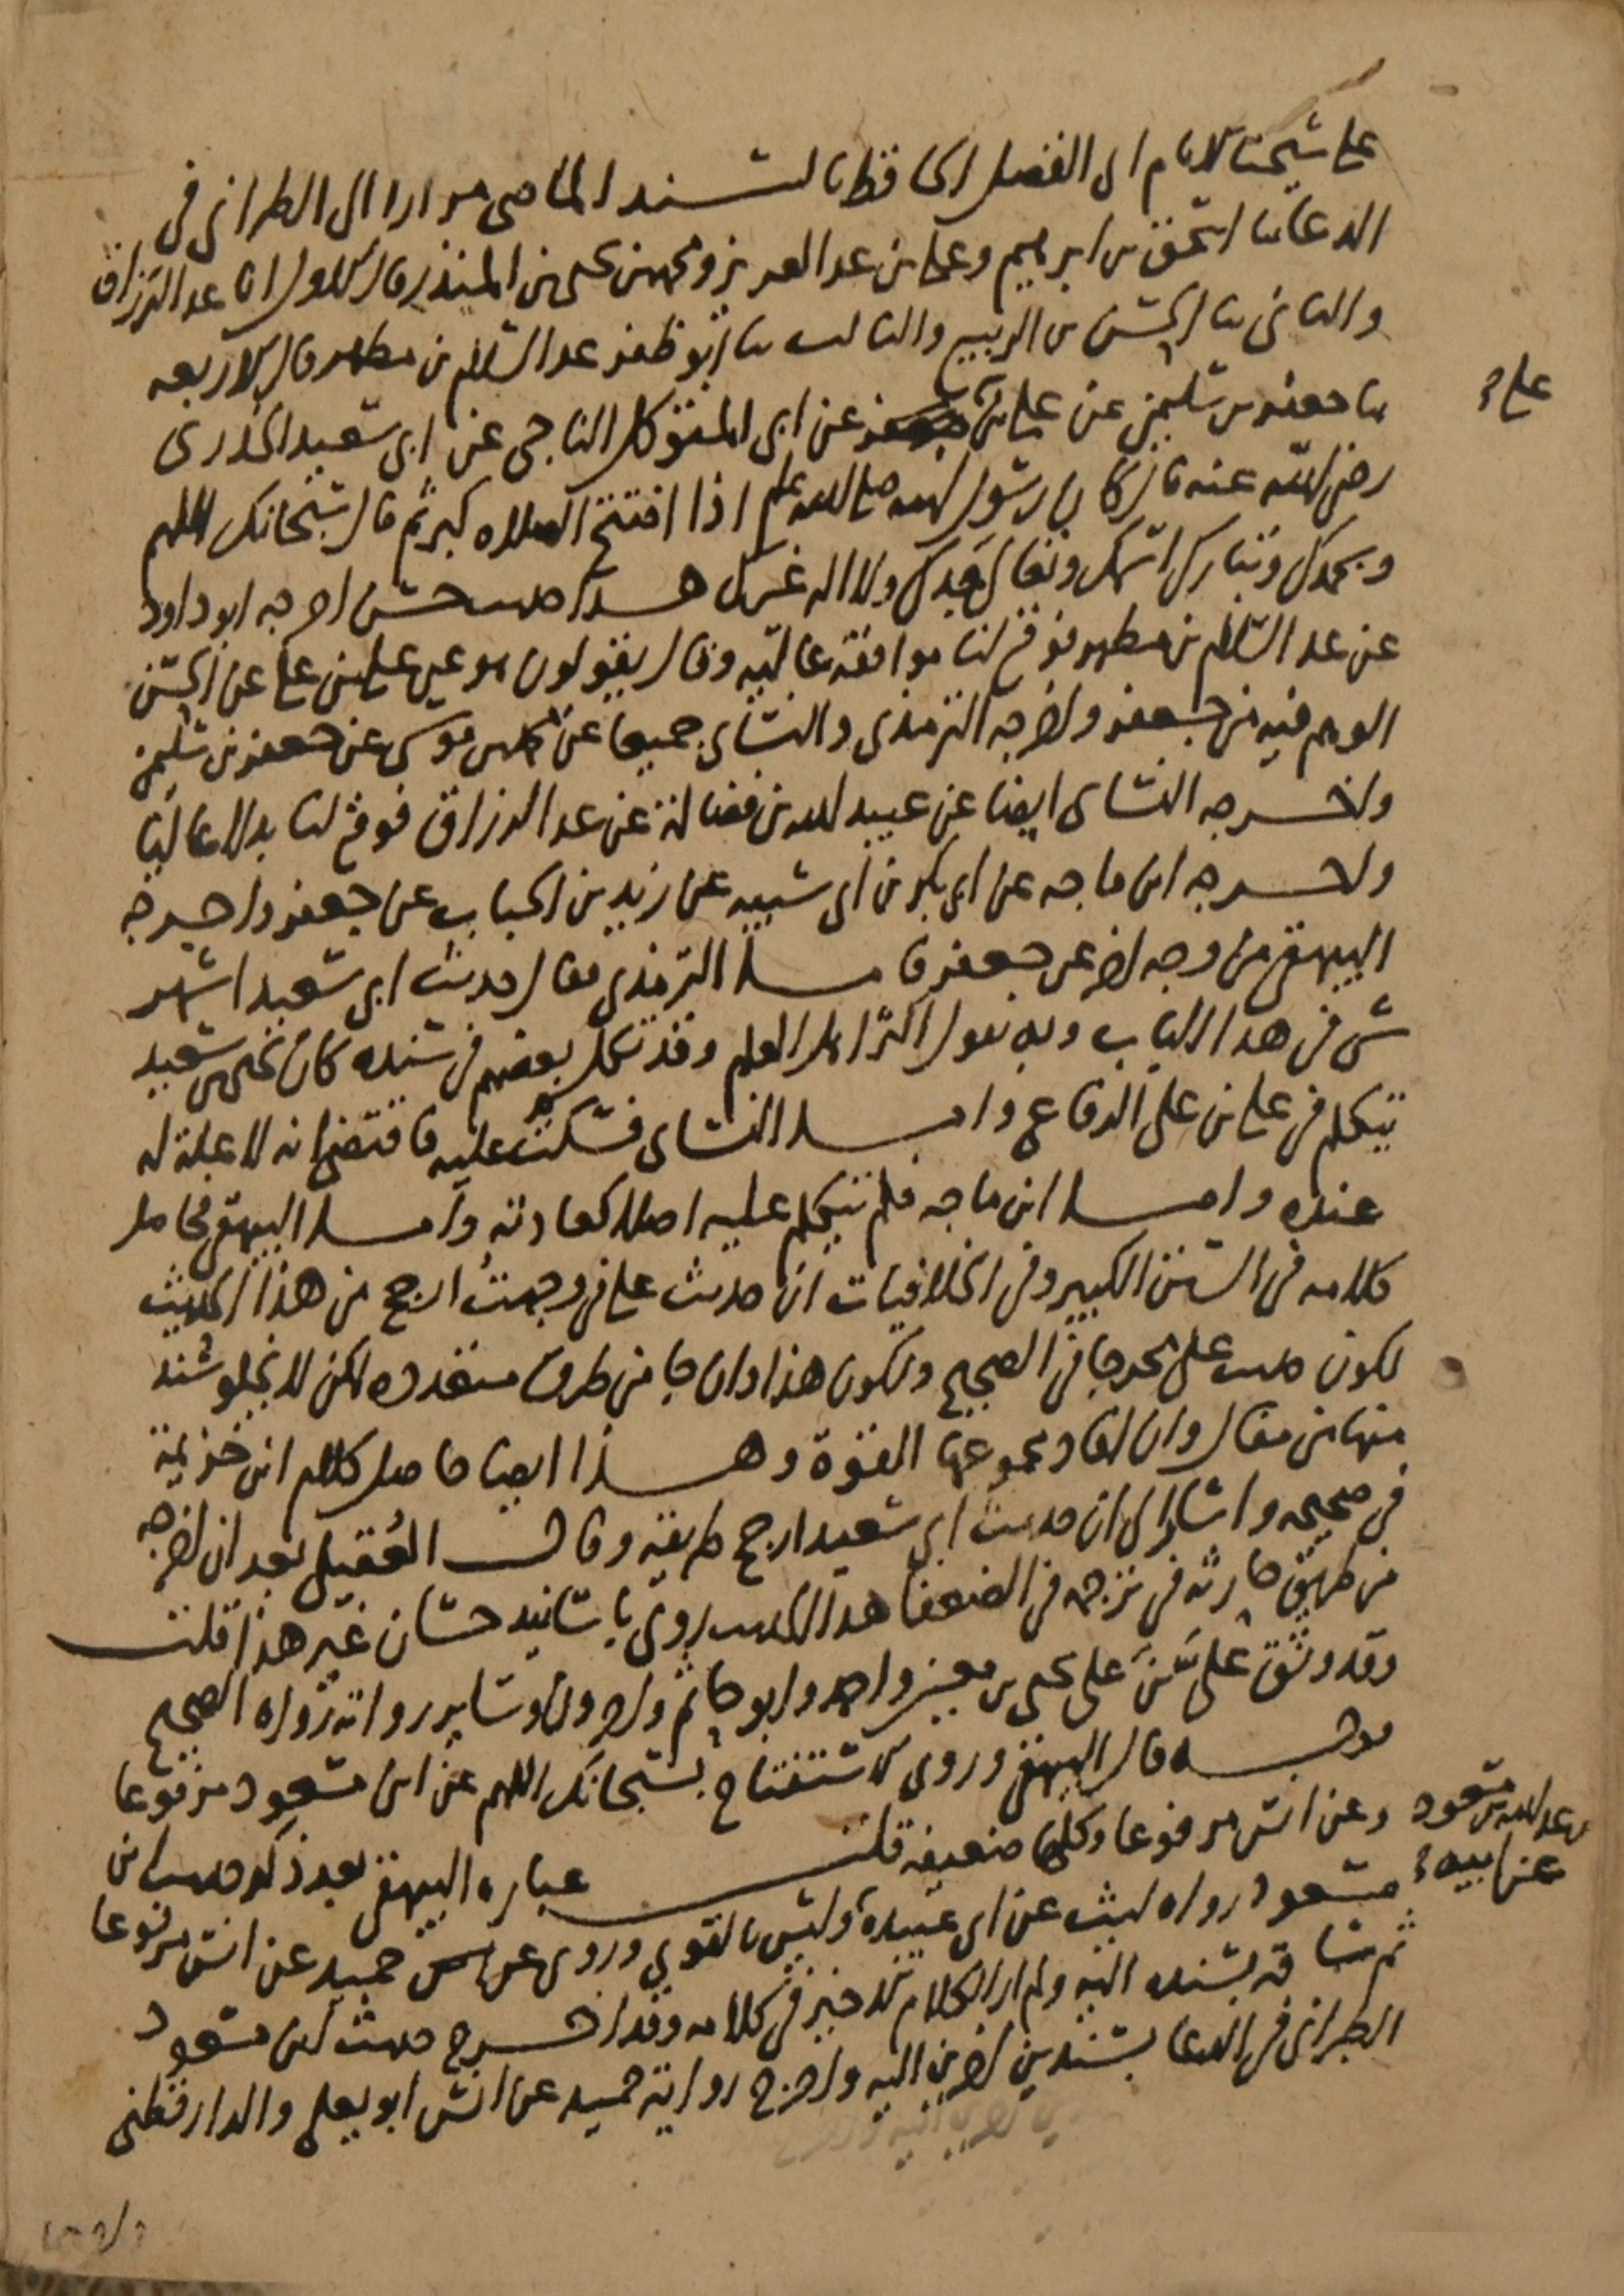 على شيخنا الامام ابى الفضل الحافظ بالسند الماضى مرارا الى الطبرانى فى
الدعا ثنا اسحق بن ابرهيم وعلى بن عبد العزيز ومحمد بن يحيى بن المنذر قال الاول انا عبد الرزاق
والثانى ثنا الحسن بن الربيع والثالث ثنا ابو ظفر عبد السلام بن مطهر قال الاربعه
ثنا جعفر بن سليمن عن على بن على عن ابى المتوكل الناجى عن ابى سعيد الخدرى
رضى الله عنه قال كان رسول الله صلى الله عليه وسلم اذا افتتح الصلاه كبر ثم قال سبحانك اللهم
وبحمدك وتبارك اسمك وتعالى جدك ولا اله غيرك هذا حديث حسن اخرجه ابو داود
عن عبد السلام بن مطهر فوقع لنا موافقة عاليه وقال يقولون هو عن على بن على عن الحسن
الوهم فيه من جعفر واخرجه الترمذى والنسائ جميعا عن محمد بن موسى عن جعفر بن سليمن
واخرجه النساى ايضا عن عبيد الله بن فضالة عن عبد الرزاق فوقع لنا بدلا عاليا
واخرجه ابن ماجه عن ابى بكر بن ابى شيبه عن زيد بن الحباب عن جعفر واخرجه
البيهقى من وجه اخر عن جعفر فاما الترمذى فقال حديث ابى سعيد اشهر
شى فى هذا الباب وبه يقول اكثر اهل العلم وقد تكلم بعضهم فى سنده كان يحيى بن سعيد
يتكلم فى على بن على الرفاعى واما النساى فسكت عليه فاقتضى انه لا علة له
عنده واما ابن ماجه فلم يتكلم عليه اصلا كعادته واما البيهقى فحاصل
كلامه فى السنن الكبير وفى الخلافيات ان حديث على فى وجهت ارجح من هذا الحديث
لكون حديث على مخرجا فى الصحيح ولكون هذا وان جا من طرق متعدده لكن لا يخلو سند
منها من مقال وان افاد مجموعها القوة وهذا ايضا حاصل كلام ابن خزيمة
فى صحيحه واشار الى ان حديث ابى سعيد ارجح طريقه وقال العُقيلى بعد ان اخرجه
من طريق حارثه فى ترجمه فى الضعفا هذا الحديث روى باسانيد حسان غير هذا قلت
وقد وثق على بن على يحيى بن معين واحمد وابو حاتم واخرون وساير رواته رواه الصحيح
قوله قال البيهقى وروى الاستفتاح بسبحانك اللهم عن ابن مسعود مرفوعا
وعن انس مرفوعا وكلها ضعيفه قلت عبارة البيهقى بعد ذكر حديث ابن
مسعود رواه ليث عن ابى عبيدة وليس بالقوى وروى عن حميد عن انس مرفوعا
ثم ساقه بسنده اليه ولم ار الكلام الاخير فى كلامه وقد اخرج حديث ابن مسعود
الطبرانى فى الدعا بسندين اخرين اليه واخرج رواية حميد عن انس ابو يعلى والدارقطنى
على
بن عبد الله بن مسعود
عن ابيه